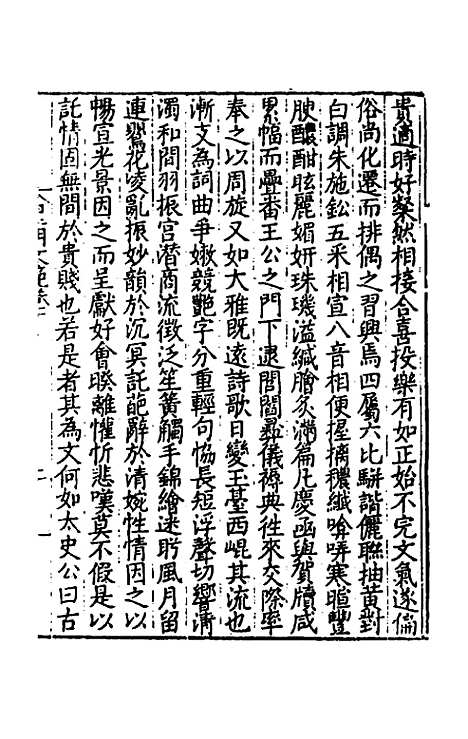 貴適時好粲然相接合喜投樂有如正始不完文氣遂偏
俗尚化遷而排偶之習興焉四屬六比駢諧儷聯抽黃對
白調朱施鈆五采相宣八音相便握摛穠纖唅哢寒暄豐
腴醲酣眩麗媚妍珠璣溢緘膾炙滿篇凡慶函與賀牘咸
累幅而疊番王公之門下逮閭閻彛儀縟典徃來交際率
奉之以周旋又如大雅既逺詩歌日變玉臺西崐其流也
漸文為詞曲爭嫩競艷字分重輕句恊長短浮聲切響清
濁和間羽振宫潜商流徵泛笙簧觸手錦繪迷眄風月留
連鶯花凌亂振妙韻於沉冥託葩辭於清婉性情因之以
暢宣光景因之而呈獻好會暌離懽忻悲嘆莫不假是以
託情固無間於貴賤也若是者其為文何如太史公曰古